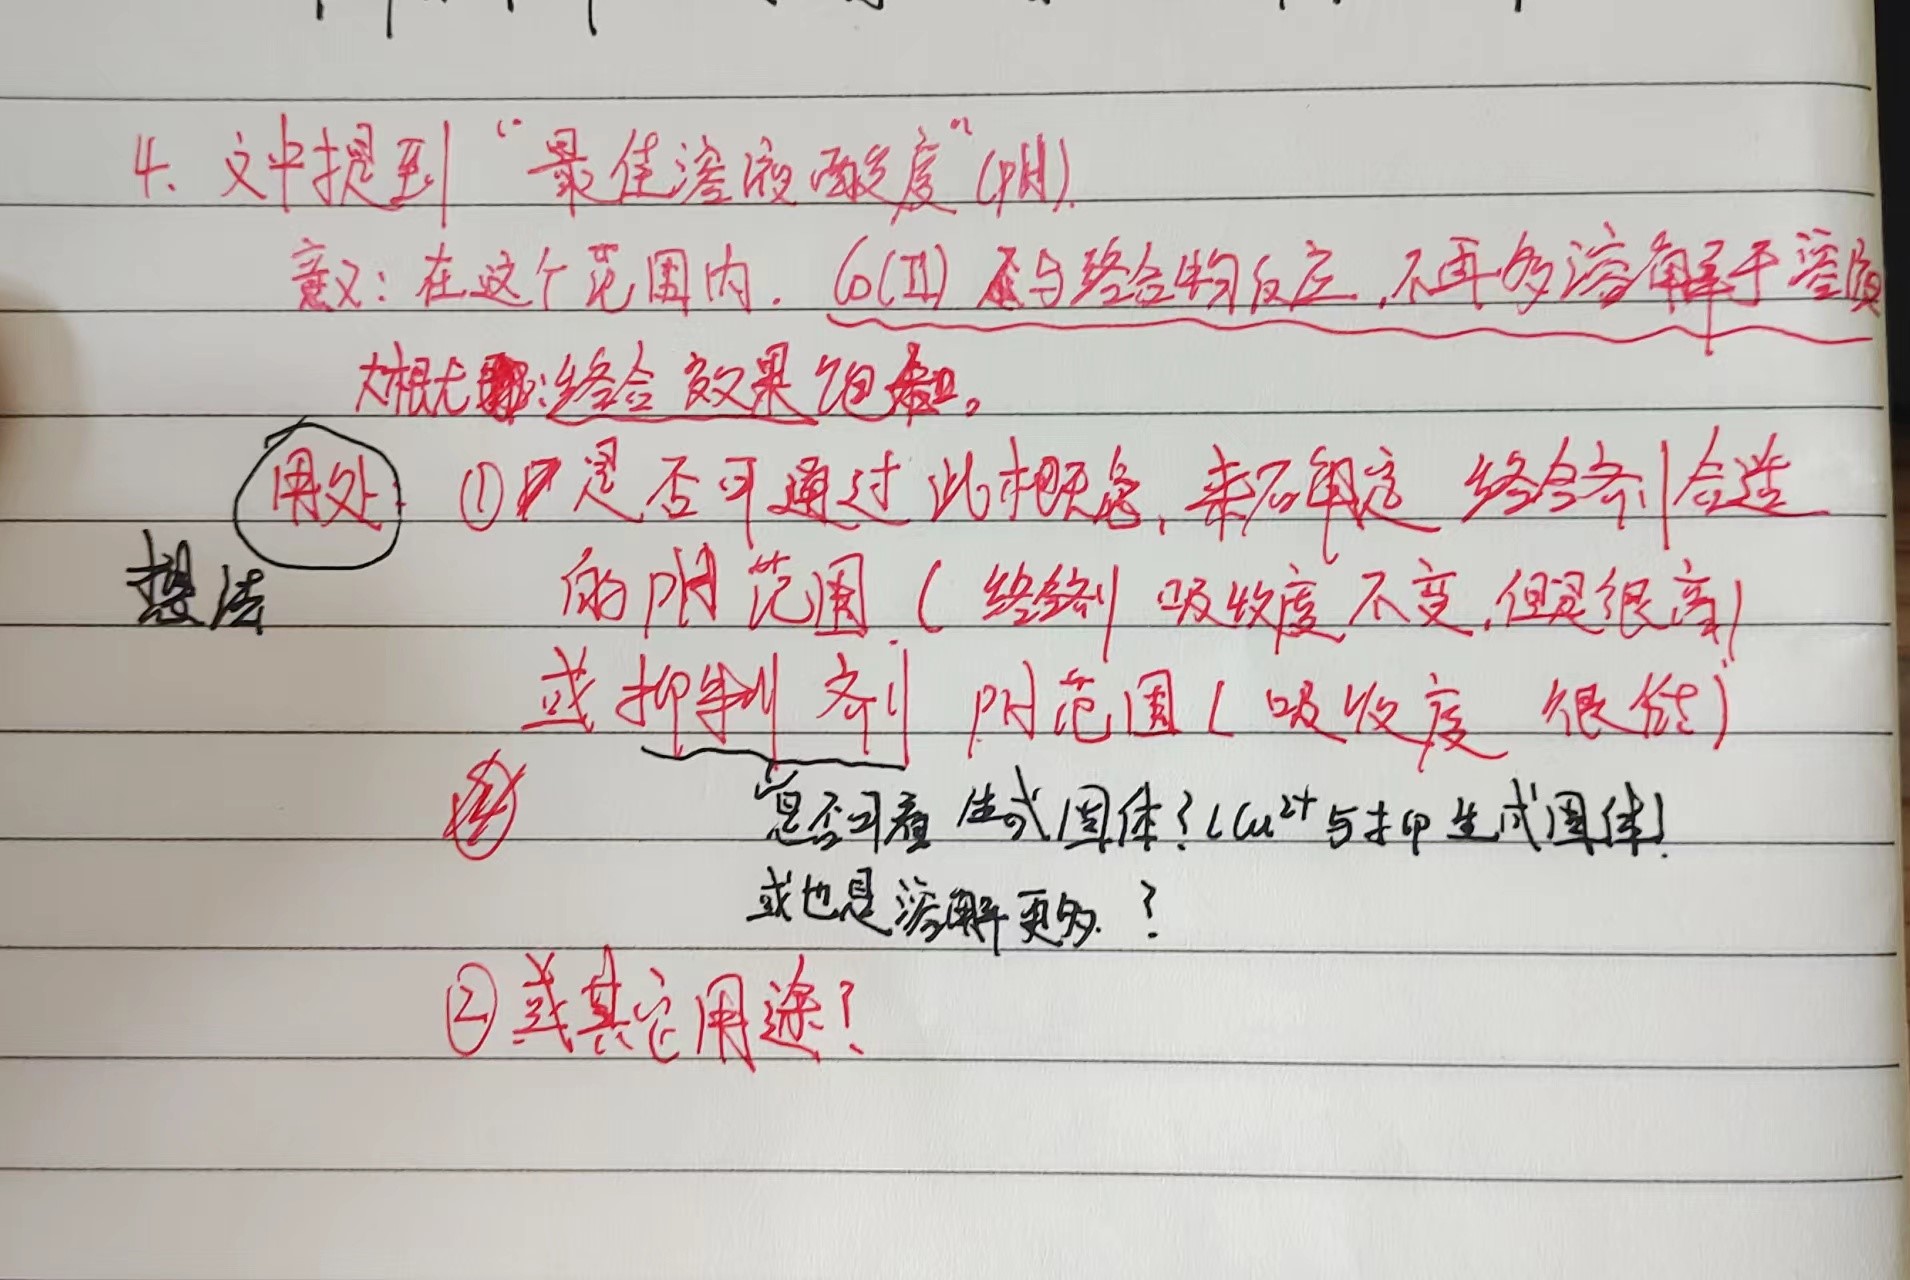 4、文中提到“最佳溶液酸度”(pH).
意义:在这个范围内. Co(Ⅱ) 不与络合物反应,不再多溶解于溶液
大概尤:络合效果饱和。
用处 ①是否可通过此概念,来确定 络合剂合适
想法 的PH范围(络合剂 吸收度不变,但是很高)
或抑制剂 PH范围(吸收度 很低)
是否可看 生成固体?(Cu²⁺与抑生成固体)
或也是溶解更多.?
②或其它用途?